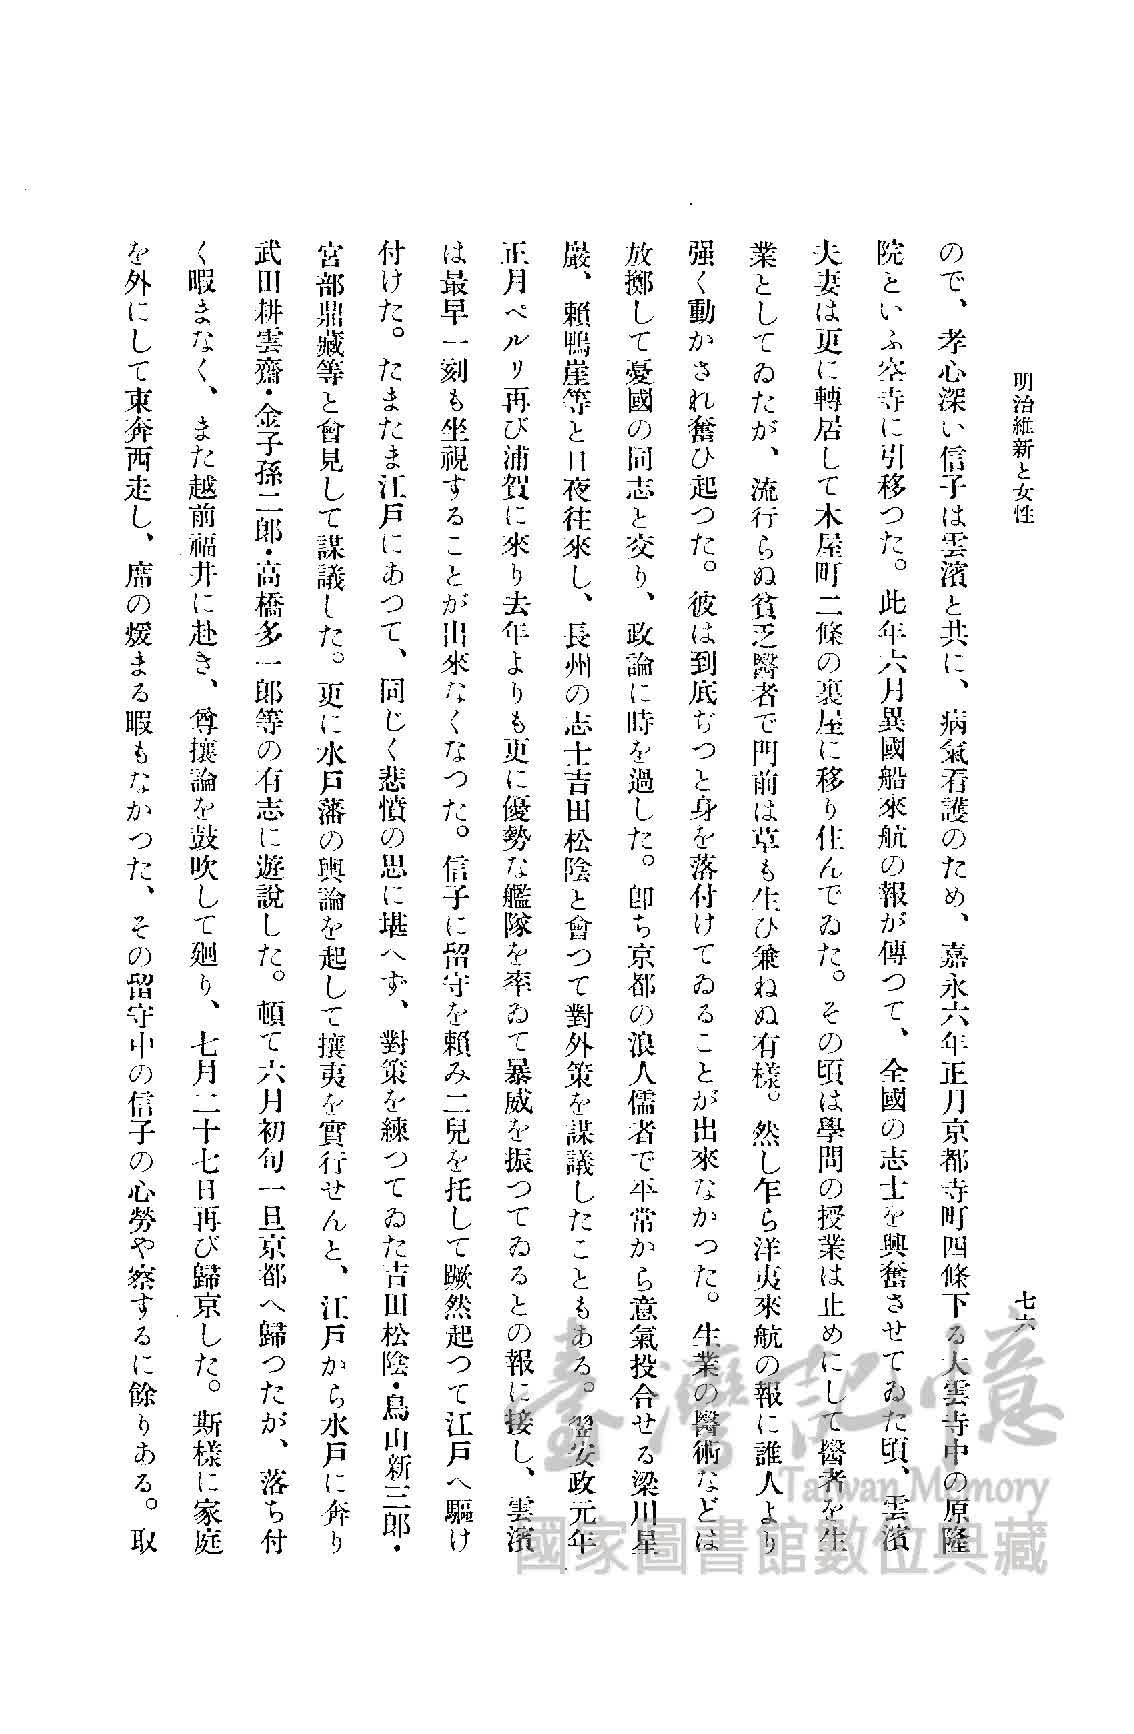 明治維新と女性
七六
ので、孝心深い信子は雲濱と共に、病氣看護のため、嘉永六年正月京都寺町四條下る大雲寺中の原隆
院といふ空寺に引移つた。此年六月異國船來航の報が傳つて、全國の志士を興奮させてゐた頃、雲濱
夫妻は更に轉居して木屋町二條の裏屋に移り住んでゐた。その頃は學問の授業は止めにして醫者を生
業としてゐたが、流行らぬ貧乏醫者で門前は草も生ひ兼ねぬ有樣。然し乍ら洋夷來航の報に誰人より
强く動かされ奮ひ起つた。彼は到底ぢつと身を落付けてゐることが出來なかつた。生業の醫術などは
放擲して憂國の同志と交り、政論に時を過した。卽ち京都の浪人儒者で平常から意氣投合せる梁川星
巖、賴鴨崖等と日夜往來し、長州の志士吉田松陰と會つて對外策を謀議したこともある。翌安政元年
正月ペルリ再び浦賀に來り去年よりも更に優勢な艦隊を率ゐて暴威を振つてゐるとの報に接し、雲濱
は最早一刻も坐視することが出來なくなつた。信子に留守を賴み二兒を托して蹶然起つて江戶へ驅け
付けた。たまたま江戶にあつて、同じく悲憤の思に堪へず、對策を練つてゐた吉田松陰・鳥山新三郎・
宮部鼎藏等と會見して謀議した。更に水戶藩の輿論を起して攘夷を實行せんと、江戶から水戶に奔り
武田耕雲齋・金子孫二郎・高橋多一郎等の有志に遊說した。頓て六月初旬一旦京都へ歸つたが、落ち付
く暇まなく、また越前福井に赴き、尊攘論を鼓吹して廻り、七月二十七日再び歸京した。斯樣に家庭
を外にして東奔西走し、席の煖まる暇もなかつた、その留守中の信子の心勞や察するに餘りある。取
臺灣記憶
Taiwan Memory
國家圖書館數位典藏